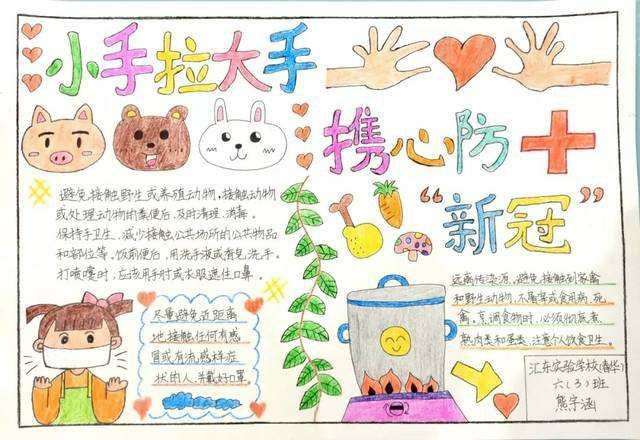 小手拉大手
携心防
“新冠”
避免接触野生或养殖动物,接触动物
或处理动物的粪便后,及时清理、消毒。
保持手卫生、减少接触公共场所的公共物品
和部位等。饭前便后,用洗手液或肥皂,洗手。
打喷嚏时,应该用手肘或衣服遮住口鼻。
尽量避免近距离
地接触任何有感
冒或有流感样症
状的人,并戴好口罩。
远离传染源,避免接触到家禽
和野生动物,不屠宰或食用病、死
禽。烹调食物时,必须彻底煮
熟肉类和蛋类,注意个人饮食卫生。
江东实验学校(春华)
六(3)班
熊宇涵